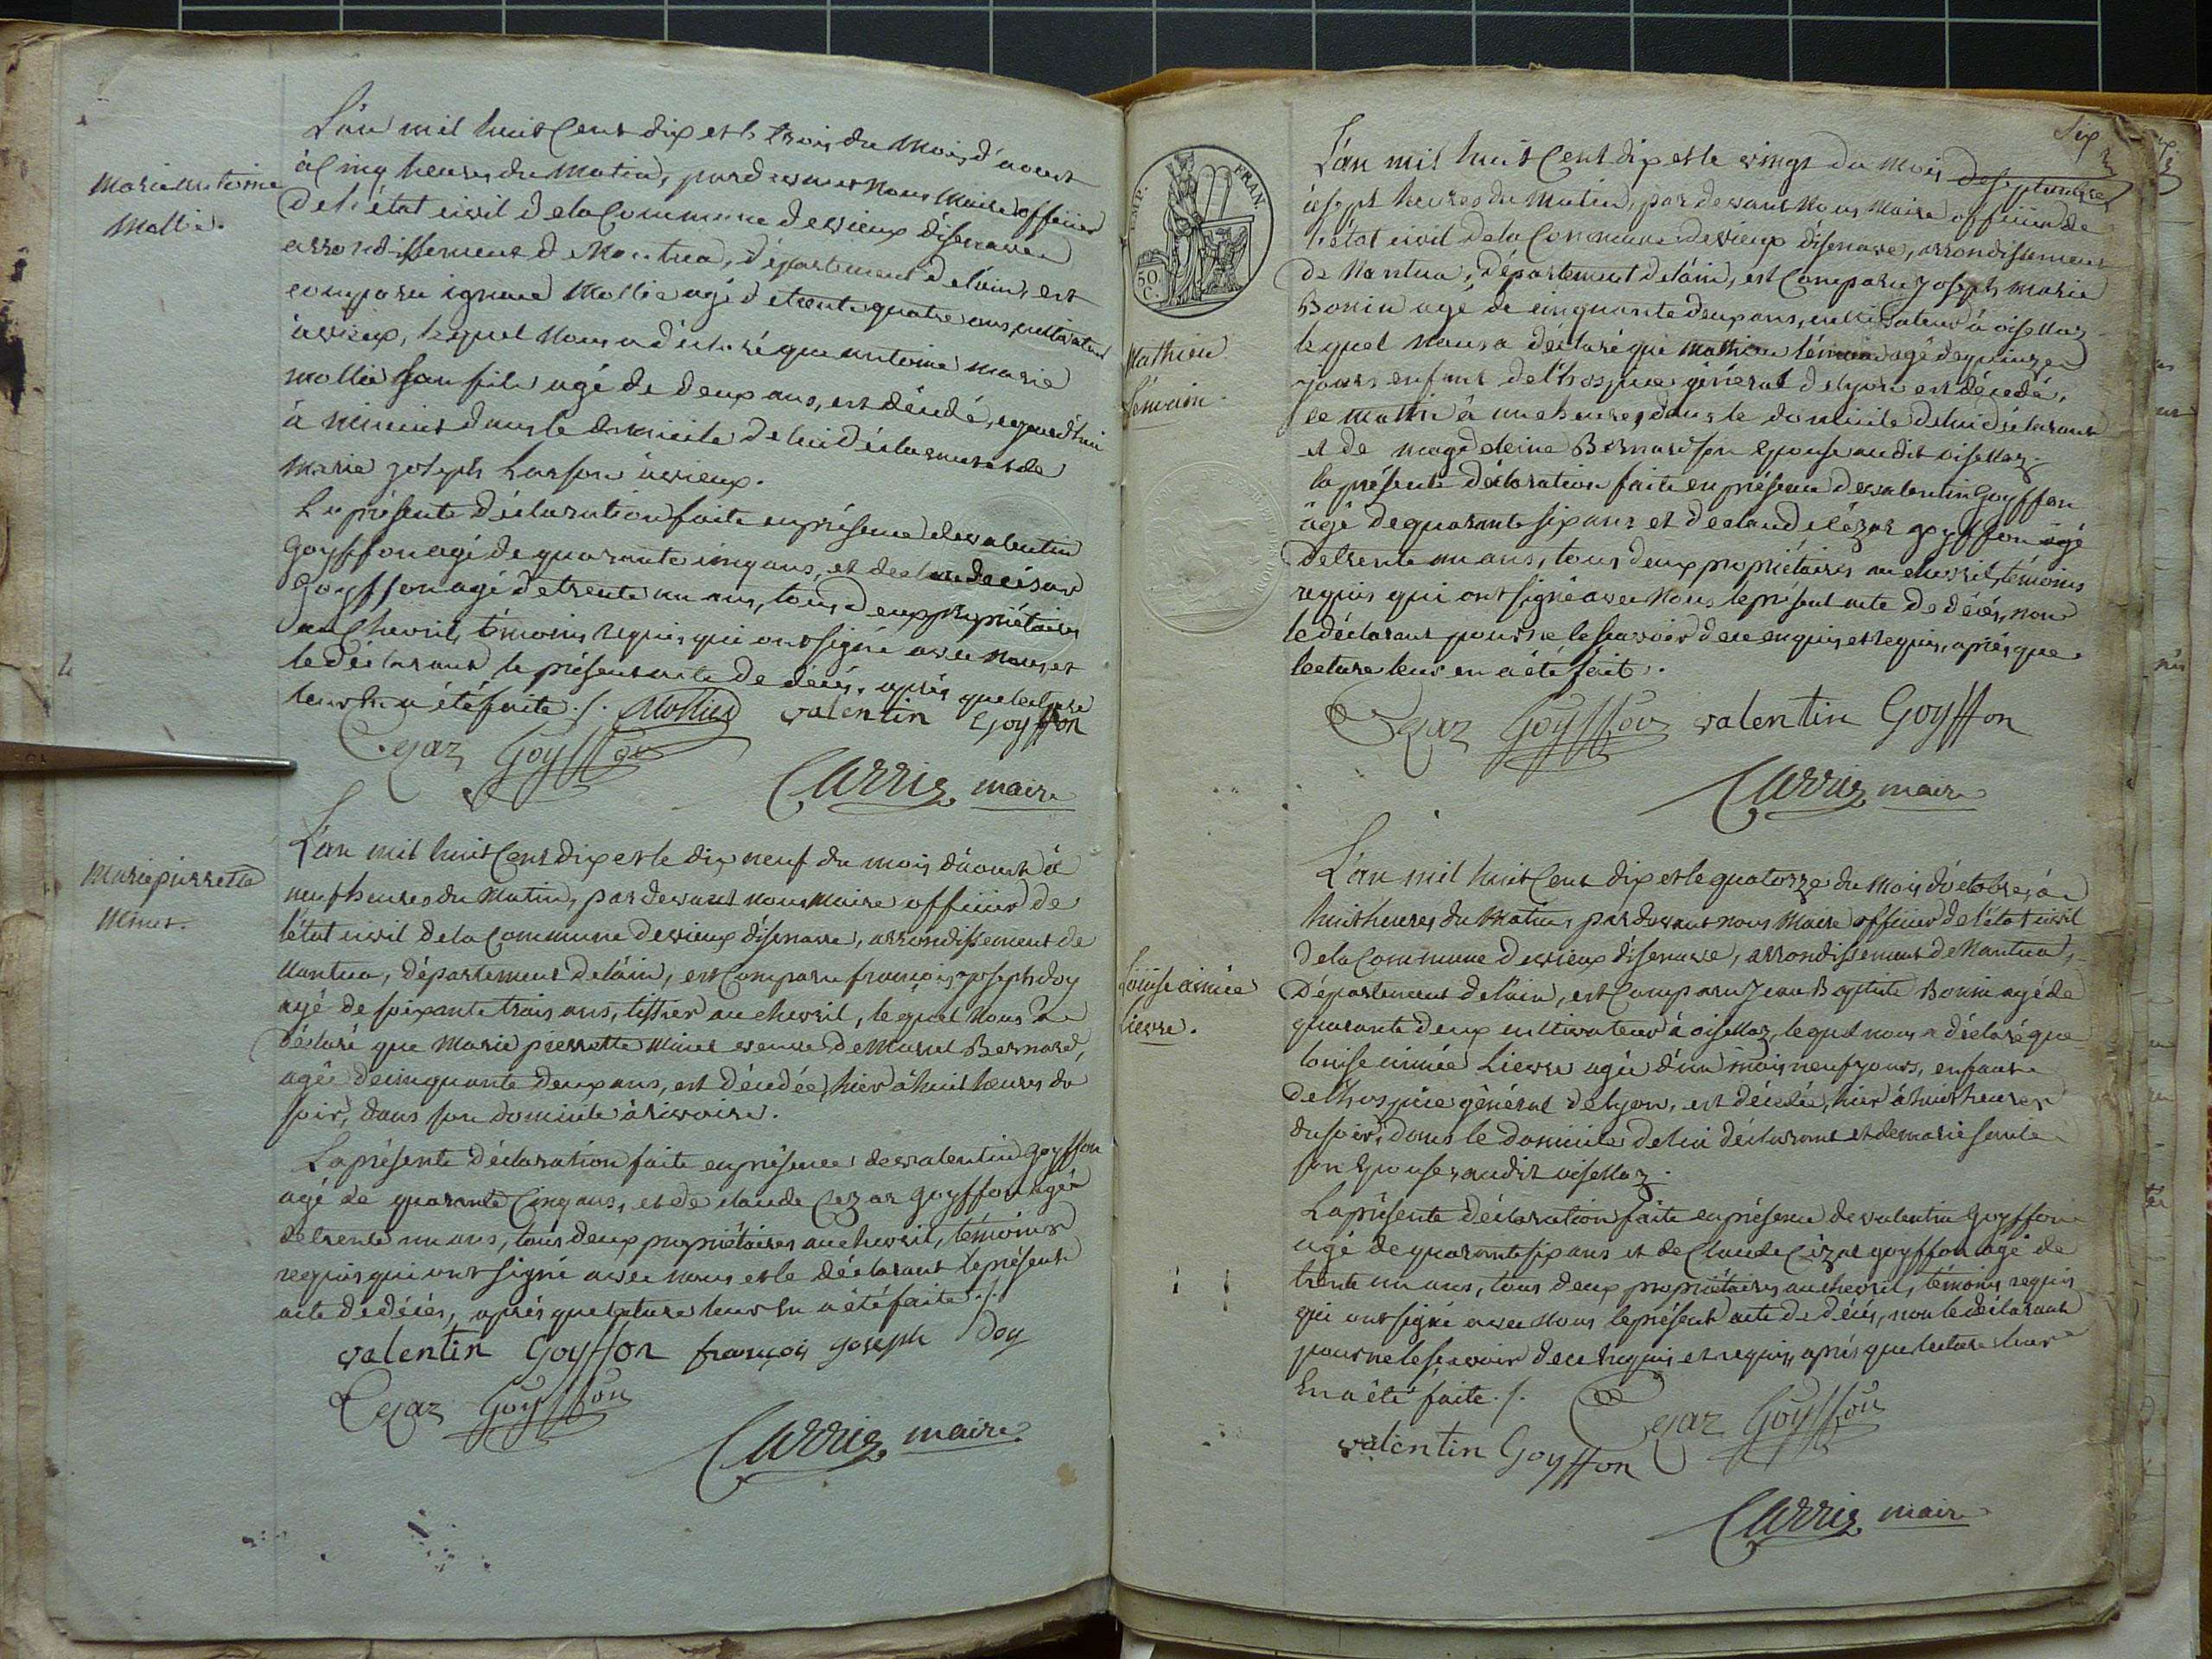 Marie antoine
Mollie.
L'an mil huit Cent dix et le trois du Mois d'aoust
à Cinq heures du Matin, pardevant Nous Maire officier
de l'état civil de la Commune de vieux disenave
arrondissement de Nantua, département de l'ain, est
comparu ignace Mollie agé de trente quatre ans, cultivateur
à vieux, lequel Nous a déclaré que antoine marie
mollie son fils agé de deux ans, est décédé, cejourd'hui
à minuit dans le domicile de lui déclarant et de
Marie Joseph Larson à vieux.
La présente déclaration faite en présence de valentin
Goyffon agé de quarante cinq ans, et de claude cézar
Goyffon agé de trente un ans, tous deux propriétaires
au Chevril, témoins requis, qui ont signé avec Nous, et
le déclarant le présent acte de décès, après que lecture
leur En a été faite ./. Mollie valentin Goyffon
Cezaz Goyffon
Carrig maire
Marie pierrette
Minet.
L'an mil huit Cent dix et le dix neuf du mois d'aoust à
neuf heures du Matin, pardevant nous Maire officier de
l'état civil de la Commune de vieux disenave, arrondissement de
Nantua, département de l'ain, est Comparu françois joseph doy
agé de soixante trois ans, tissier au chevril, lequel Nous a
déclaré que Marie pierrette Minet veuve de Marcel Bernard,
agée de cinquante deux ans, est décédée, hier à huit heures du
soir, dans son domicile à rivoire.
La présente déclaration faite en présence de valentin Goyffon
agé de quarante Cinq ans, et de claude Cezar Goyffon agé
de trente un ans, tous deux propriétaires au chevril, témoins
requis qui ont signé avec nous et le déclarant le présent
acte de décès, après que lecture leur En a été faite ./.
valentin Goyffon françois joseph Doy
Cezaz Goyffon
Carrig maire
Six
IMP. FRAN.
50 C.
Mathieu
Lémain.
L'an mil huit Cent dix et le vingt du Mois de septembre
à sept heures du Matin, pardevant Nous Maire officier de
l'état civil de la Commune de vieux disenave, arrondissement
de Nantua, département de l'ain, est Comparu Joseph Marie
Bonin agé de cinquante deux ans, cultivateur à oisellaz
lequel Nous a déclaré que Mathieu lémain agé de quinze
jours enfant de l'hospice général de lyon est décédé,
ce matin à une heure, dans le domicile de lui déclarant
et de magdeleine Bernard son Epouse audit oisellaz.
la présente déclaration faite en présence de valentin Goyffon
âgé de quarante six ans et de claude cézar goyffon âgé
de trente un ans, tous deux propriétaires au chevril, témoins
requis qui ont signé avec Nous le présent acte de décès, non
le déclarant pour ne le sçavoir de ce enquis et requis, après que
lecture leur en a été fait.
Cezaz Goyffon valentin Goyffon
Carrig maire
Louise aimée
Lievre.
L'an mil huit Cent dix et le quatorze du Mois d'octobre, à
huit heures du Matin, pardevant nous Maire officier de l'état civil
de la Commune de vieux disenave, arrondissement de Nantua,
Département de l'ain, est Comparu Jean Baptiste Bonin agé de
quarante deux cultivateur à oisellaz, lequel nous a déclaré que
louise aimée Lievre agée d'un mois neuf jours, enfant
de l'hospice général de lyon, est décédée, hier à huit heures
du soir, dans le domicile de lui déclarant et de marie
son Epouse, audit oisellaz.
La présente déclaration faite en présence de valentin Goyffon
agé de quarante six ans et de Claude Cézar goyffon agé de
trente un ans, tous deux propriétaires au chevril, témoins requis
qui ont signé avec Nous le présent acte de décès, non le déclarant
pour ne le sçavoir de ce Enquis et requis, après que lecture leur
En a été faite ./. Cezaz Goyffon
valentin Goyffon
Carrig maire